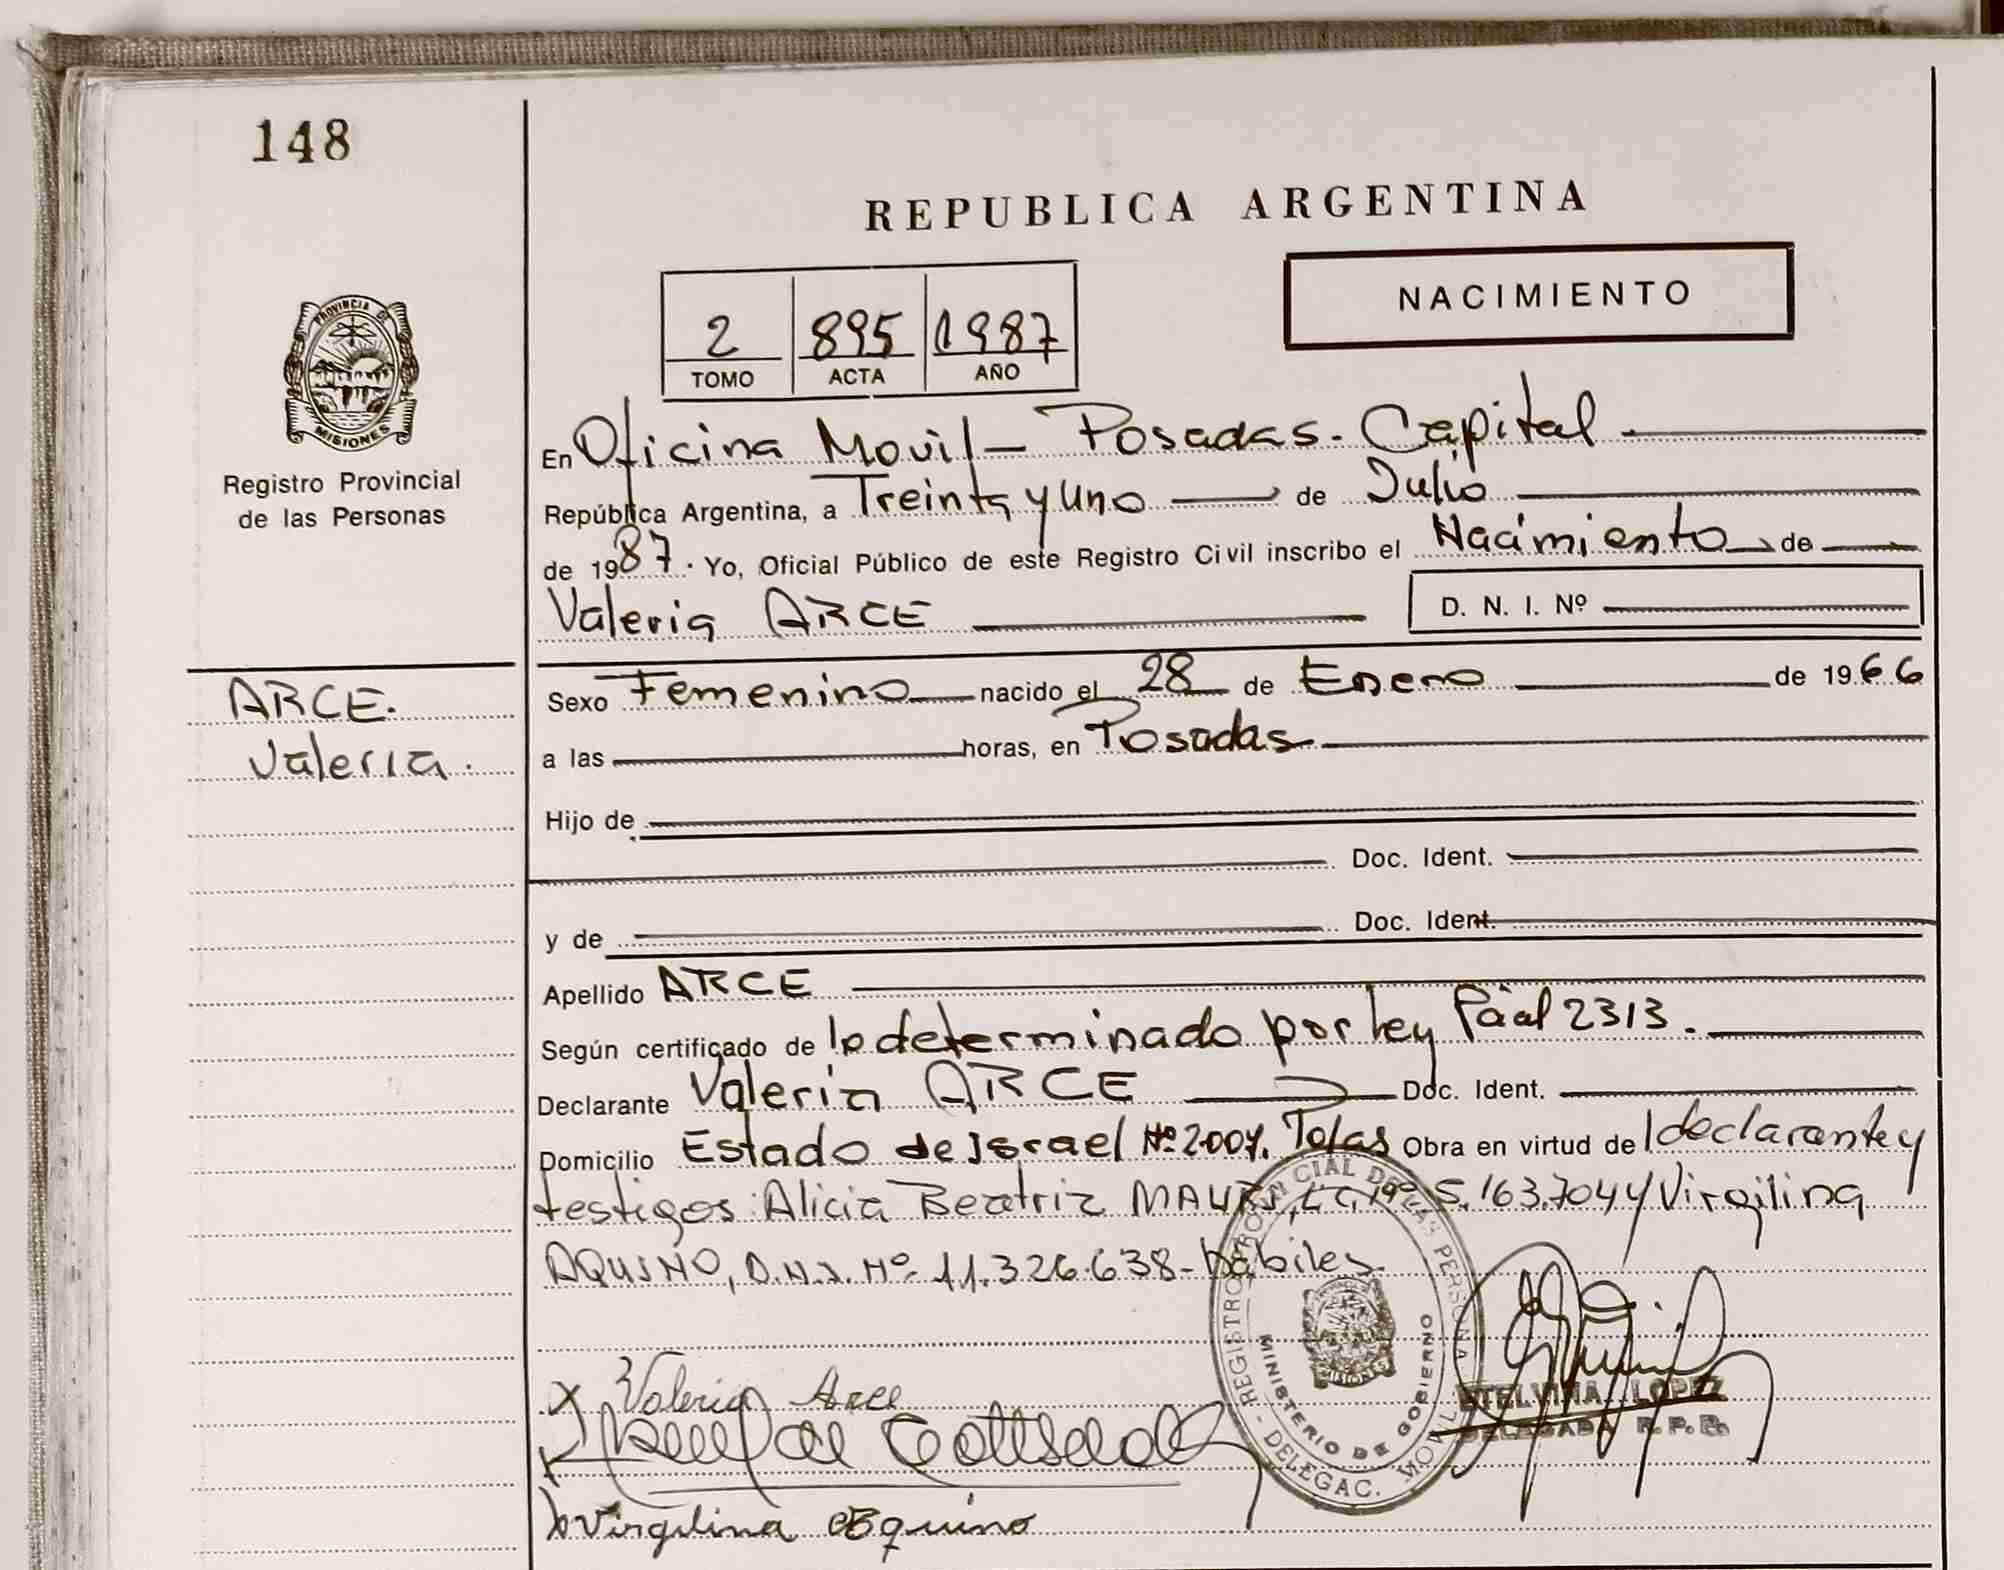 148
REPUBLICA ARGENTINA
NACIMIENTO
2 895 1987
TOMO ACTA AÑO
PROVINCIA DE
MISIONES
Registro Provincial
de las Personas
En Oficina Movil - Posadas. Capital
República Argentina, a Treinta y uno de Julio
de 1987. Yo, Oficial Público de este Registro Civil inscribo el Nacimiento de
Valeria ARCE D. N. I. Nº
ARCE.
Valeria.
Sexo Femenino nacido el 28 de Enero de 1966
a las horas, en Posadas
Hijo de
Doc. Ident.
y de Doc. Ident.
Apellido ARCE
Según certificado de lo determinado por Ley Pcial 2313.
Declarante Valeria ARCE Doc. Ident.
Domicilio Estado de Israel Nº 2007. Pdas Obra en virtud de l declarante y
testigos: Alicia Beatriz L.C. Nº 5.163.704 y Virgilina
AQUINO, D.N.I. Nº 11.326.638 - hábiles.
REGISTRO PROVINCIAL DE LAS PERSONAS
MINISTERIO DE GOBIERNO
MISIONES
DELEGAC. MOVIL
x Valeria Arce
ETELVINA LOPEZ
DELEGADA R. P. P.
x Virgilina Aquino